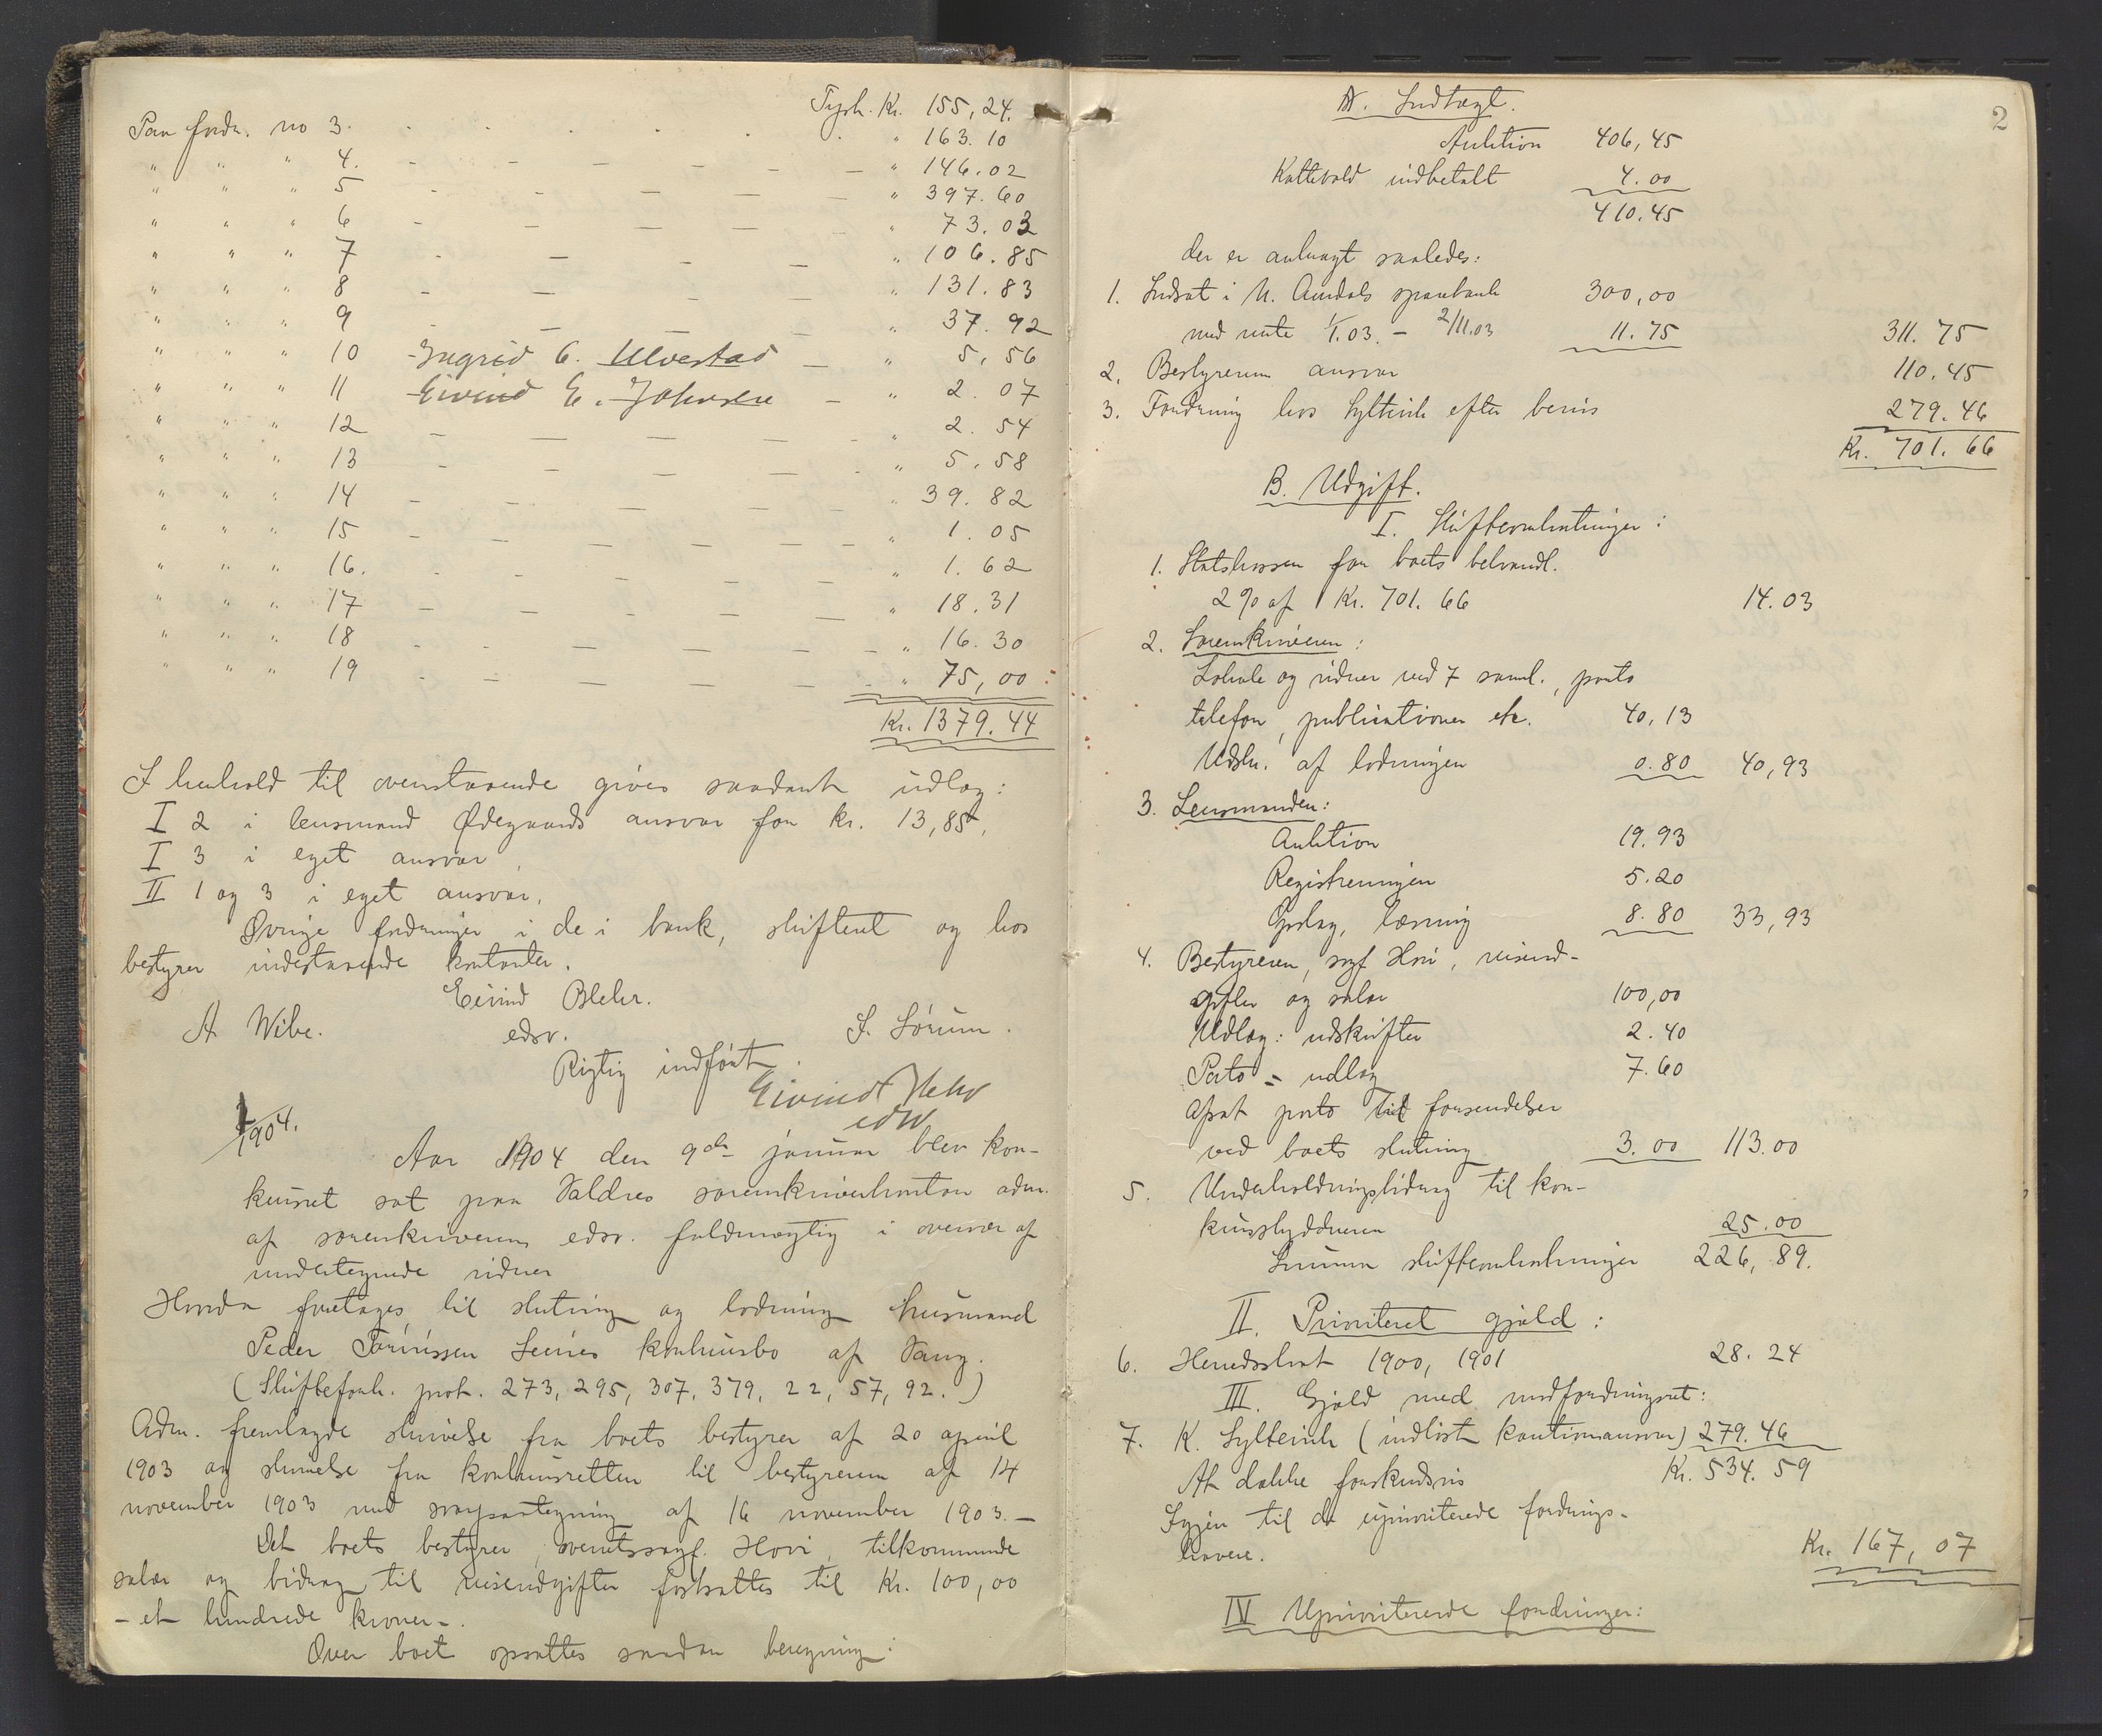 Tpsk. Kr. 155,24.
Paa fordr. no 3. " 163.10
" " " 4. — " 146.02
" " " 5 — " 397.60
" " " 6 — " 73.03
" " " 7 — " 106.85
" " " 8 — " 131.83
" " " 9 — " 37.92
" " " 10 Ingrid G. Ulvestad — " 5,56
" " " 11 Eivind E. Johnsen — " 2.07
" " " 12 — " 2.54
" " " 13 — " 5.58
" " " 14 — " 39.82
" " " 15 — " 1.05
" " " 16. — " 1.62
" " " 17 — " 18.31
" " " 18 — " 16.30
" " " 19 — " 75,00
Kr. 1379.44
I henhold til ovenstaaende gives saadant udlæg:
I 2 i lensmand Ødegaards ansvar for kr. 13,85,
I 3 i eget ansvar
II 1 og 3 i eget ansvar.
Øvrige fordringer i de i bank, skifteret og hos
bestyrer indestaaende kontanter.
Eivind Blehr.
A. Wibe. edsv. S. Sørum.
Rigtig indført.
Eivind Blehr
edsv
1904.
Aar 1904 den 9de januar blev kon-
kursret sat paa Valdres sorenskriverkontor adm.
af sorenskriverens edsv. fuldmægtig i overvær af
undertegnede vidner
Hvorda foretages til slutning og lodning husmand
Peder Torrissen Leines konkursbo af Vang.
(Skifteforh. prot. 273, 295, 307, 379, 22, 57, 92.)
Adm. fremlagde skrivelse fra boets bestyrer af 20 april
1903 og skrivelse fra konkursretten til bestyreren af 14
november 1903 med svarpaategning af 16 november 1903.—
Det boets bestyrer, overretssagf. Hovi, tilkommende
salær og bidrag til reiseudgifter fastsattes til Kr. 100,00
- et hundrede kroner-.
Over boet opsattes saadan beregning:
2
A. Indtægt.
Auktion 406,45
Kattevold indbetalt 4.00
410.45
der er anbragt saaledes:
1. Indsat i N. Aurdals sparebank 300,00
med rente 1/1.03. - 2/11.03 11.75 311.75
2. Bestyrerens ansvar 110.45
3. Fordring hos Sylterik efter bevis 279.46
Kr. 701.66
B. Udgift.
I. Skifteomkostninger:
1. Statskassen for boets behandl.
2% af Kr. 701.66 14.03
2. Sorenskriveren:
Lokale og vidner ved 7 saml., porto
telefon, publikationer etc. 40,13
Udskr. af lodningen 0.80 40,93
3. Lensmanden:
Auktion 19.93
Registreringen 5.20
Opslag, læsning 8.80 33,93
4. Bestyreren, sagf Hovi, reiseud-
gifter og salær 100,00
Udlæg: udskrifter 2.40
Porto = udlæg 7.60
Afsat porto til forsendelser
ved boets slutning 3.00 113.00
5. Underholdningsbidrag til kon-
kursskyldneren 25.00
Summa skifteomkostninger 226,89.
II. Prioritert gjæld:
6. Herredsskat 1900, 1901 28.24
III. Gjæld med modfordringsret:
7. K. Sylterik (indløst kautionsansvar) 279.46
At dække forskudsvis Kr. 534.59
Igjen til de uprioriterede fordrings-
havere. Kr. 167,07
IV Uprioriterede fordringer: